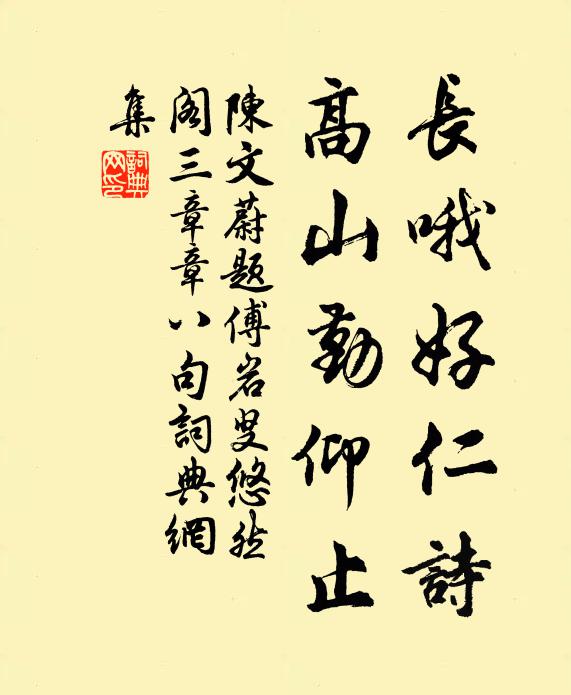 長哦好仁詩
高山勤仰止
陳文蔚題傅岩叟悠然
閣三章章八句詞典網
集
詞典網印